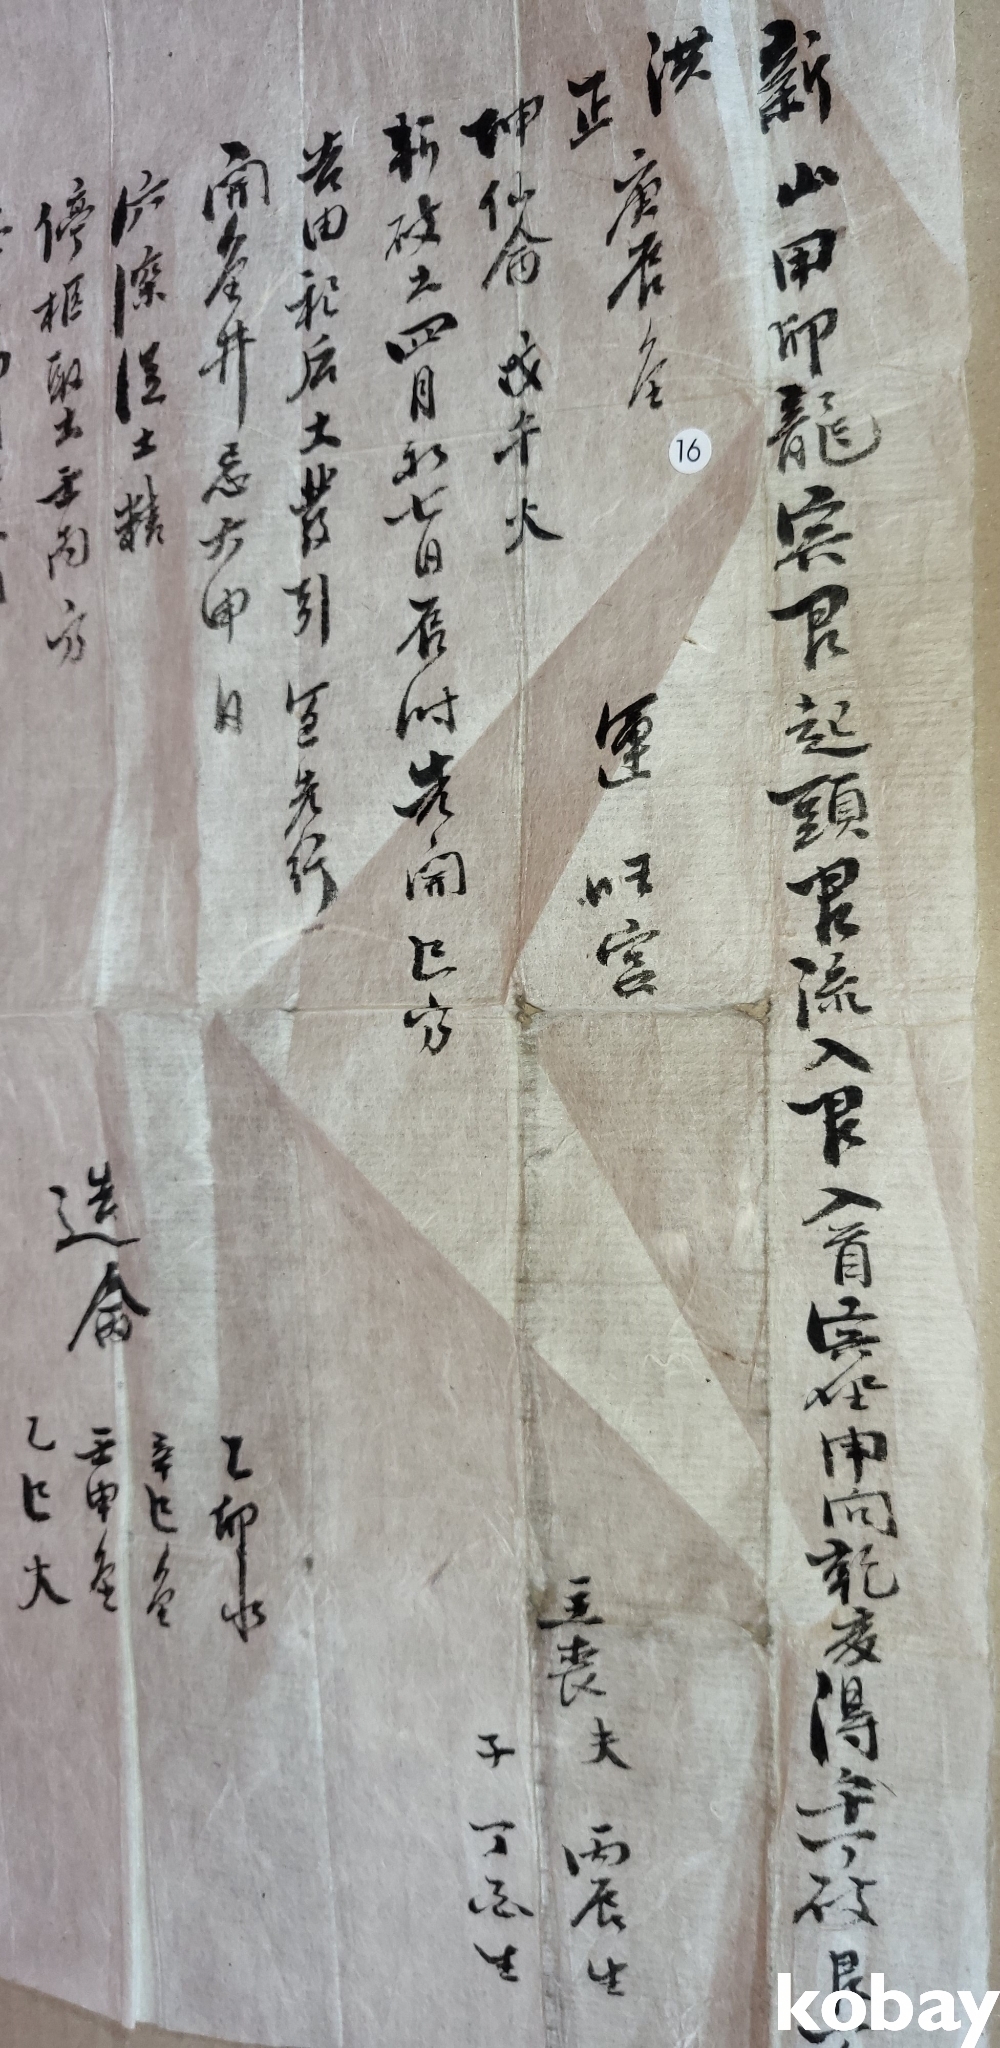 新山甲卯龍癸艮起頭艮流入艮入首癸坐甲向乾亥得午丁破艮
洪
正 庚辰金 運 旺宮
主喪夫 丙辰生
坤仙命 戊午火
子 丁酉生
斬破土四月初七日辰時先開巳方
告由祀后土發引宜先行
開金井忌六甲日
乙卯水
穴深淂土精
辛巳金
停柩取土壬丙方
造命
壬申金
乙巳火
16
kobay